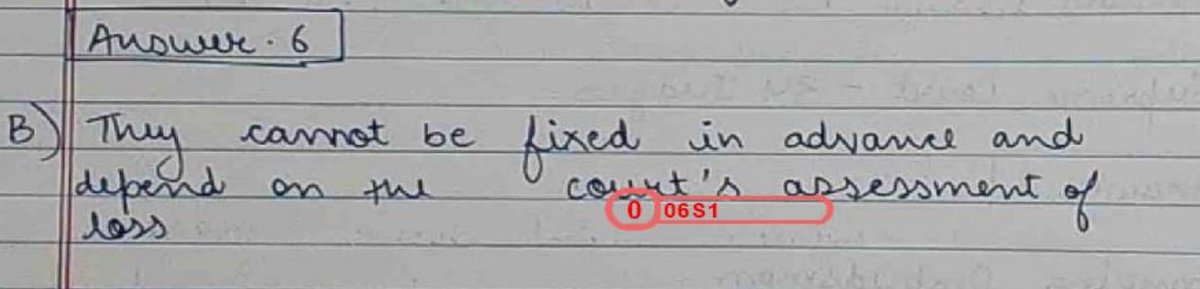 Answer. 6
B) They cannot be fixed in advance and
depend on the court's assessment of
0 06S1
loss